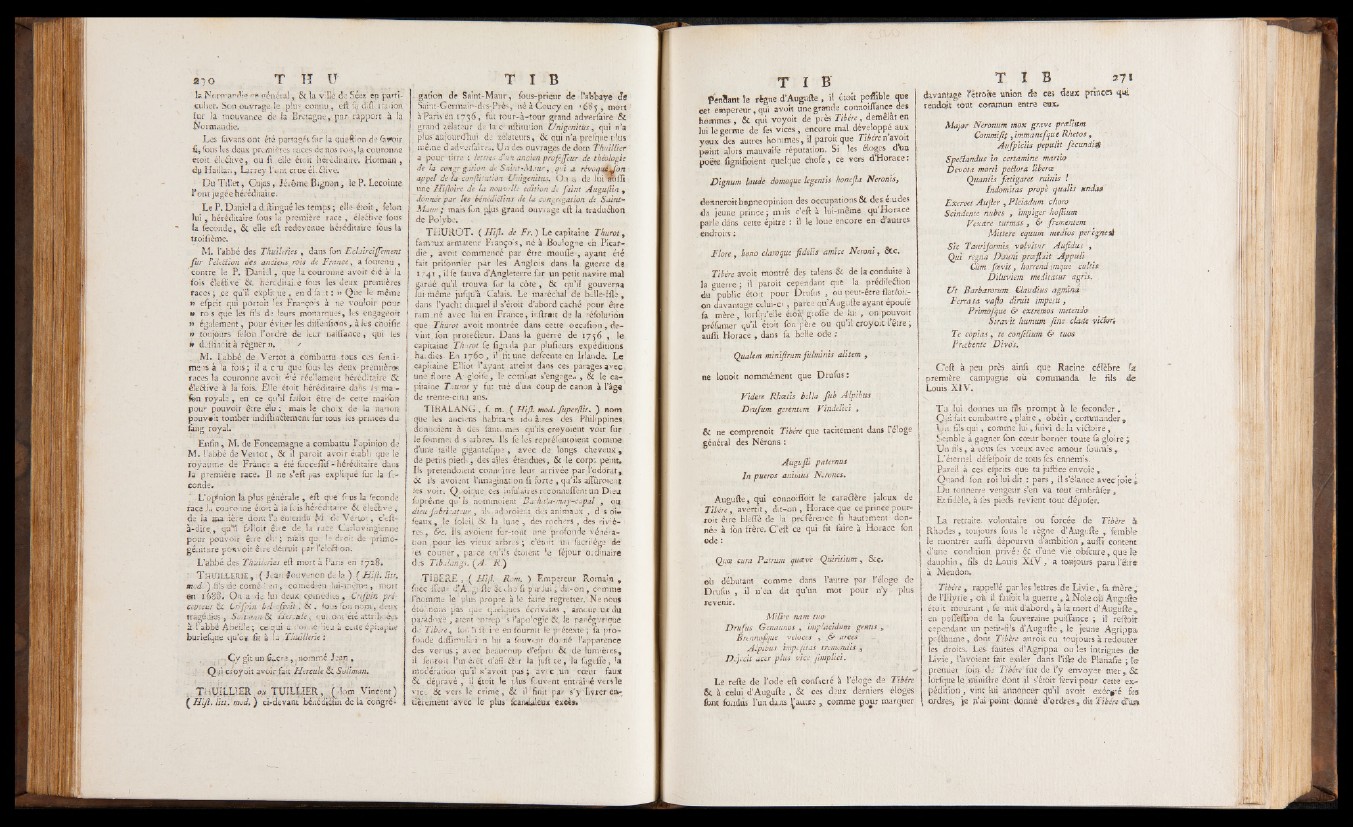 270 T H U
la Normandie en général, & la ville de Sées en parti-
culier. Son ouvrage le plus connu, est sa dissertation
sur la mouvance de la Bretagne, par rapport à la
Normandie.
Les savans ont été partagés sur la question de savoir
si, sous les deux premières races de nos rois, la couronne
étoit élective, ou si elle étoit héréditaire. Hotman,
du Haillan, Larrey l'ont crue élective.
Du Tillet, Cujas, Jérôme Bignon, le P. Lecointe
l'ont jugée héréditaire.
Le P. Daniel a distingué les temps; elle étoit, selon
lui, héréditaire sous la première race, élective sous
la seconde, & elle est redevenue héréditaire sous la
troisième.
M. l'abbé des Thuileries, dans son Eclaircissement
sur l'élection des anciens rois de France, a soutenu,
contre le P. Daniel, que la couronne avoit été à la
fois élective & héréditaire sous les deux premières
races; ce qu'il explique, en disant: » Que le même
» esprit qui portoit les François à ne vouloir pour
» rois que les fils de leurs monarques, les engageoit
» également, pour éviter les dissensions, à les choisir
» toujours selon l'ordre de leur naissance, qui les
» destinoit à régner ».
M. l'abbé de Vertot a combattu tous ces senti-
mens à la fois; il a cru que sous les deux premières
races la couronne avoit été réellement héréditaire &
élective à la fois. Elle étoit héréditaire dans la mai-
son royale, en ce qu'il falloit être de cette maison
pour pouvoir être élu; mais le choix de la nation
pouvoit tomber indistinctement sur tous les princes du
sang royal.
Enfin, M. de Foncemagne a combattu l'opinion de
M. l'abbé de Vertot, & il paroît avoir établi que le
royaume de France a été successif-héréditaire dans
la première race. Il ne s'est pas expliqué sur la se-
conde.
L'opinion la plus générale, est que sous la seconde
race la couronne étoit à la fois héréditaire & élective,
de la manière dont l'a entendu M. de Vertot, c'est-
à-dire, qu'il falloit être de la race Carlovingienne
pour pouvoir être élu; mais que le droit de primo-
géniture pouvoit être détruit par l'élection.
L'abbé des Thuileries est mort à Paris en 1728.
THUILLERIE, (Jean Jouvenon de la) (Hist. litt.
mod.) fils de comédien, comédien lui-même, mort
en 1688. On a de lui deux comédies, Crispin pré-
cepteur & Crispin bel-esprit, &, sous son nom, deux
tragédies, Soliman & Hercule, qui ont été attribuées
à l'abbé Abeille; ce qui a donné lieu à cette épitaphe
burlesque qu'on fit à la Thuillerie:
Cy gît un fiacre, nommé Jean,
Qui croyoit avoir fait Hercule & Soliman.
THUILLIER ou TUILLIER, (dom Vincent)
(Hist. litt. mod.) ci-devant bénédictin de la congré-
T I B
gation de Saint-Maur, sous-prieur de l'abbaye de
Saint-Germain-des-Prés, né à Coucy en 1685, mort
à Paris en 1736, fut tour-à-tour grand adversaire &
grand zélateur de la constitution Unigenitus, qui n'a
plus aujourd'hui de zélateurs, & qui n'a presque plus
même d'adversaires. Un des ouvrages de dom Thuillier
a pour titre: lettres d'un ancien professeur de théologie
de la congrégation de Saint-Maur, qui a révoqué son
appel de la constitution Unigenitus. On a de lui aussi
une Histoire de la nouvelle édition de saint Augustin,
donnée par les bénédictins de la congrégation de Saint-
Maur; mais son plus grand ouvrage est la traduction
de Polybe.
THUROT. (Hist. de Fr.) Le capitaine Thurot,
fameux armateur François, né à Boulogne en Picar-
die, avoit commencé par être mousse, ayant été
fait prisonnier par les Anglois dans la guerre de
1741, il se sauva d'Angleterre sur un petit navire mal
gardé qu'il trouva sur la côte, & qu'il gouverna
lui même jusqu'à Calais. Le maréchal de belle-Isle,
dans l'yacht duquel il s'étoit d'abord caché pour être
ramené avec lui en France, instruit de la résolution
que Thurot avoit montrée dans cette occasion, de-
vint son protecteur. Dans la guerre de 1756, le
capitaine Thurot se signala par plusieurs expéditions
hardies. En 1760, il fit une descente en Irlande. Le
capitaine Elliot l'ayant atteint dans ces parages avec
une flotte Angloise, le combat s'engagea, & le ca-
pitaine Thurot y fut tué d'un coup de canon à l'âge
de trente-cinq ans.
TIBALANG, s. m. (Hist. mod. superstit.) nom
que les anciens habitans idolâtres des Philippines
donnoient à des fantômes qu'ils croyoient voir sur
le sommet des arbres. Ils se les représentoient comme
d'une taille gigantesque, avec de longs cheveux,
de petits pieds, des aîles étendues, & le corps peint.
Ils prétendoient connoître leur arrivée par l'odorat,
& ils avoient l'imagination si forte, qu'ils assûroient
les voir. Quoique ces insulaires reconnussent un Dieu
suprême qu'ils nommoient Barhala-may-capal, ou
dieu fabricateur, ils adoroient des animaux, des oi-
seaux, le soleil & la lune, des rochers, des riviè-
res, &c. Ils avoient sur-tout une profonde vénéra-
tion pour les vieux arbres; c'étoit un sacrilège de
les couper, parce qu'ils étoient le séjour ordinaire
des Tibalangs. (A. R)
TIBERE, (Hist. Rom.) Empereur Romain,
succéesseur d'Auguste & choisi par lui, dit-on, comme
l'homme le plus propre à le faire regretter. Ne nous
étonnons pas que quelques écrivains, amoureux du
paradoxe, aient entrepris l'apologie & le panégyrique
de Tibère, son histoire en fournit le prétexte; sa pro-
fonde dissimulation lui a souvent donné l'apparence
des vertus; avec beaucoup d'esprit & de lumières,
il sentoit l'intérêt d'affecter la justice, la sagesse, la
modération qu'il n'avoit pas; avec un cœur faux
& dépravé, il étoit le plus souvent entraîné vers le
vice & vers le crime, & il finit par s'y livrer en-
tièrement avec le plus scandaleux excès.
T I B
Pendant le règne d'Auguste, il étoit possible que
cet empereur, qui avoit une grande connoissance des
hommes, & qui voyoit de près Tibère, démêlât en
lui le germe de ses vices, encore mal développé aux
yeux des autres hommes, il paroît que Tibère n'avoit
point alors mauvaise réputation. Si les éloges d'un
poëte signifioient quelque chose, ce vers d'Horace:
Dignum laude domoque legentis honesta Neronis,
donneroit bonne opinion des occupations & des études
du jeune prince; mais c'est à lui-même qu'Horace
parle dans cette épitre: il le loue encore en d'autres
endroits:
Flore, bono claroque fidelis amice Neroni, &c.
Tibère avoit montré des talens & de la conduite à
la guerre; il paroît cependant que la prédilection
du public étoit pour Drusus, ou peut-être flattoit-
on davantage celui-ci, parce qu'Auguste ayant épousé
sa mère, lorsqu'elle étoit grosse de lui, on pouvoit
présumer qu'il étoit son père ou qu'il croyoit l'être,
aussi Horace, dans sa belle ode:
Qualem ministrum fulminis alitem,
ne louoit nommément que Drusus:
Videre Rhœtis bella sub Alpibus
Drusum gerentem Vindelici,
& ne comprenoit Tibère que tacitement dans l'éloge
général des Nérons:
Augusti paternus
In pueros animus Nerones.
Auguste, qui connoissoit le caractère jaloux de
Tibère, avertit, dit-on, Horace que ce prince pour-
roit être blessé de la préférence si hautement don-
née à son frère. C'est ce qui fit faire à Horace son
ode:
Quæ cura Patrum quæve Quiritium, &c.
où débutant comme dans l'autre par l'éloge de
Drusus, il n'en dit qu'un mot pour n'y plus
revenir.
Milite nam tuo
Drusus Genaunos, implacidum genus,
Brennosque veloces, & arces
Alpibus impositas tremendis,
Dejecit acer plus vice simplici.
Le reste de l'ode est consacré à l'éloge de Tibère
& à celui d'Auguste, & ces deux derniers éloges
sont fondus l'un dans l'autre, comme pour marquer
T I B 271
davantage l'étroite union de ces deux princes qui
rendoit tout commun entre eux.
Major Neronum mox grave prœlium
Commisit, immanesque Rhetos,
Auspiciis pepulit secundis
Spectandus in certamine martio
Devota morti pectora liberæ
Quantis fatigaret ruinis!
Indomitas propè qualis undas
Exercet Auster, Pleiadum choro
Scindente nubes, impiger hostium
Vexare turmas, & frementem
Mittere equum medios per ignes
Sic Tauriformis volvitur Aufidus,
Qui regna Dauni præfluit Appuli
Cum sævit, horrendamque cultis
Diluviem meditatur agris.
Ut Barbarorum Claudius agmina
Ferrata vasto diruit impetu,
Primosque & extremos metendo
Stravit humum sine clade victor.
Te copias, te consilium & tuos
Præbente Divos.
C'est à peu près ainsi que Racine célèbre sa
première campagne où commanda le fils de
Louis XIV.
Tu lui donnes un fils prompt à le seconder,
Qui sait combattre, plaire, obéir, commander,
Un fils qui, comme lui, suivi de la victoire,
Semble à gagner son cœur borner toute sa gloire;
Un fils, à tous ses vœux avec amour soumis,
L'éternel désespoir de tous ses ennemis.
Pareil à ces esprits que ta justice envoie,
Quand son roi lui dit: pars, il s'élance avec joie,
Du tonnerre vengeur s'en va tout embrâser,
Et fidèle, à ses pieds revient tout déposer.
La retraite, volontaire ou forcée de Tibère à
Rhodes, toujours sous le règne d'Auguste, semble
le montrer aussi dépourvu d'ambition, aussi content
d'une condition privée & d'une vie obscure, que le
dauphin, fils de Louis XIV, a toujours paru l'être
à Meudon.
Tibère, rappellé par les lettres de Livie, sa mère,
de l'Illyrie, où il faisoit la guerre, à Nole où Auguste
étoit mourant, se mit d'abord, à la mort d'Auguste,
en possession de la souveraine puissance; il restoit
cependant un petit-fils d'Auguste, le jeune Agrippa
posthume, dont Tibère auroit eu toujours à redouter
les droits. Les fautes d'Agrippa ou les intrigues de
Livie, l'avoient fait exiler dans l'isle de Planasie; le
premier soin de Tibère fut de l'y envoyer tuer, &
lorsque le ministre dont il s'étoit servi pour cette ex-
pédition, vint lui annoncer qu'il avoit exécuté ses
ordres, je n'ai point donné d'ordres, dit Tibère d'un